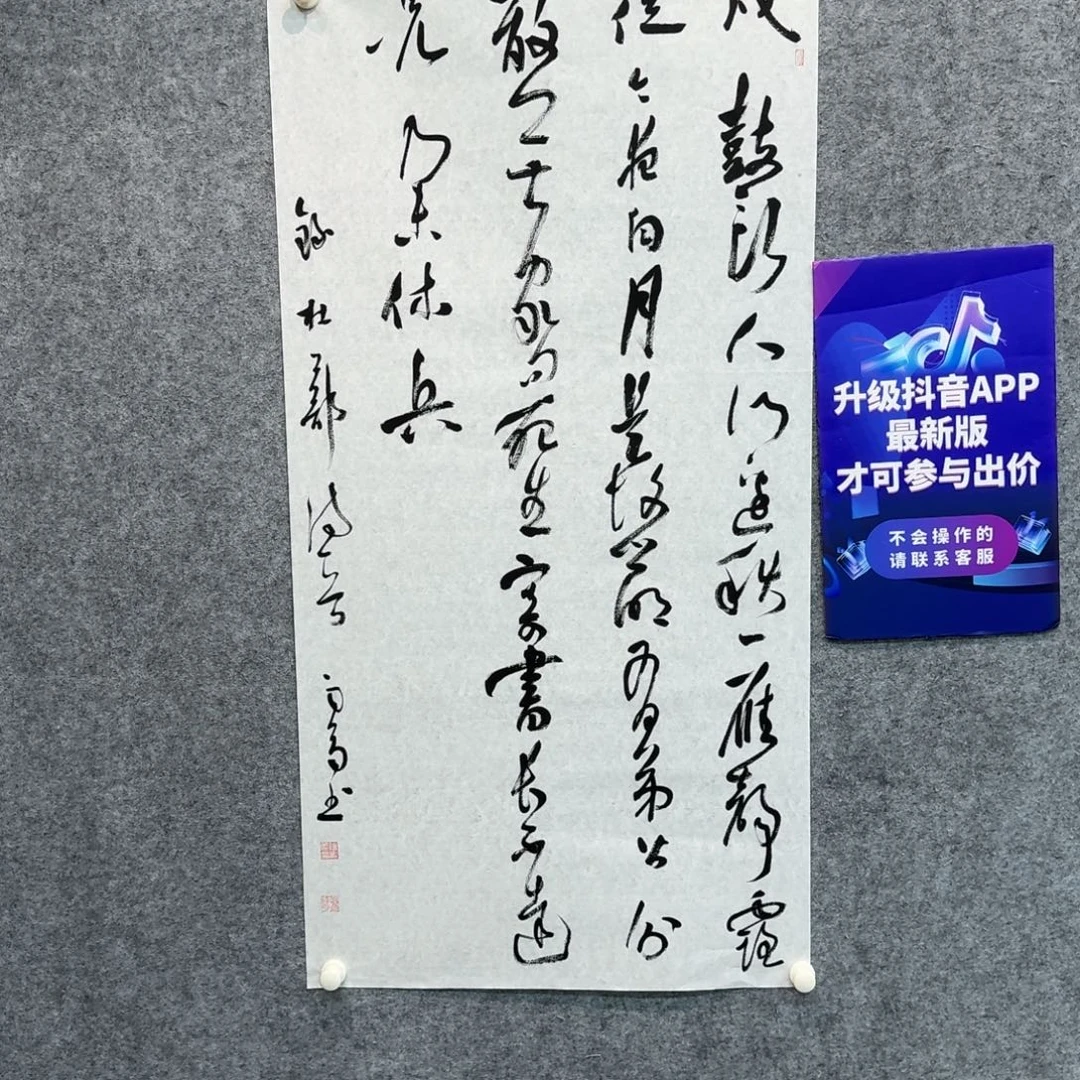 戍鼓断人行邊秋一雁聲露
從今夜白月是故鄉明有弟皆分
散無家問死生寄書長不達
况乃未休兵
錄杜工部詩一首
书
升级抖音APP
最新版
才可参与出价
不会操作的
请联系客服